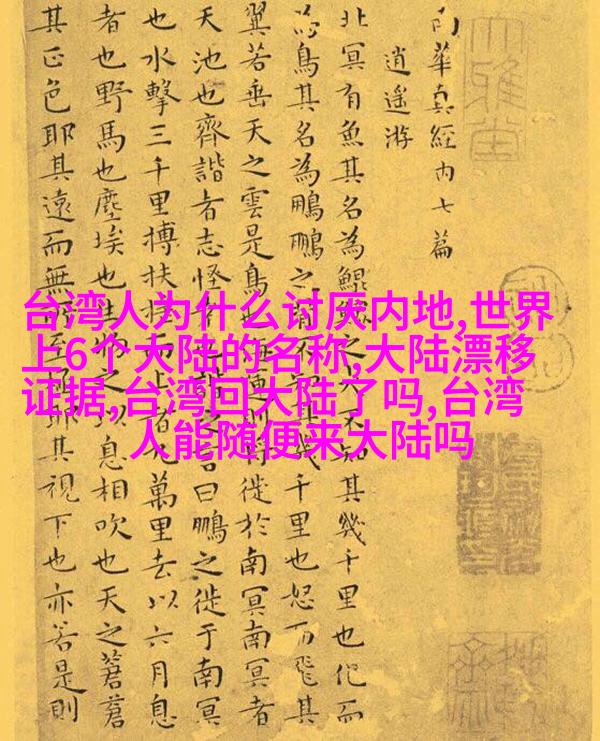 南華真經内七篇
逍遥游
北冥有魚其名為鯤鯤之大不知其幾千里也化而
為鳥其名為鵬鵬之不知其幾千里也怒而飛其
翼若垂天之雲是鳥也海運則將徙於南冥南冥者
天池也齊諧者志怪者也諧之言曰鵬之徙于南冥
也水擊三千里摶扶搖而上者九萬里去以六月息
者也野馬也塵埃也生物之以息相吹也天之蒼蒼
其正色耶其遠而無所至極耶其視下也亦若是則
台湾人为什么讨厌内地,世界
上6个大陆的名称,大陆漂移
证据,台湾回大陆了吗,台湾
人能随便来大陆吗